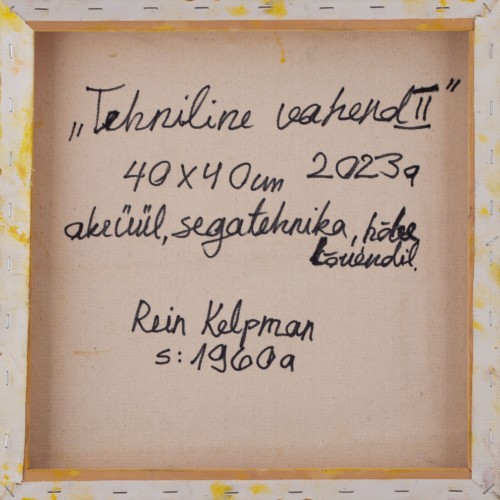 „Tehniline vahend II”
40 x 40 cm 2023a
akrüül, segatehnika, hõbe
lõuendil.
Rein Kelpman
s: 1960a